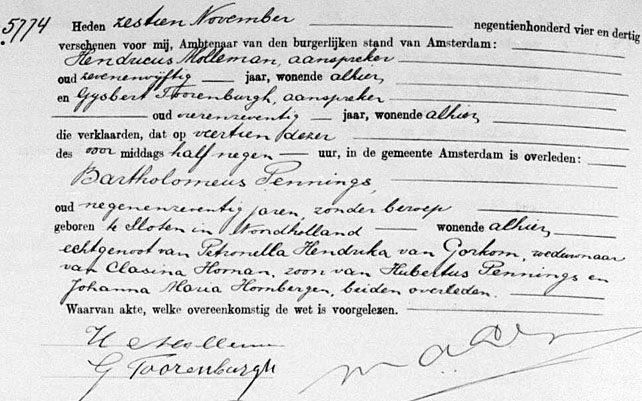 5774
Heden zestien November negentienhonderd vier en dertig
verschenen voor mij, Ambtenaar van den burgerlijken stand van Amsterdam:
Hendricus Molleman, aanspreker
oud zevenenvijftig jaar, wonende alhier,
en Gysbert Toorenburgh, aanspreker
oud jaar, wonende alhier,
die verklaarden, dat op veertien dezer
des voor middags half negen uur, in de gemeente Amsterdam is overleden:
Bartholomeus Pennings,
oud negenenzeventig jaren, zonder beroep
geboren te Sloten in Noordholland wonende alhier,
echtgenoot van Petronella Hendrika van Gorkom, weduwnaar
van Clasina Homan, zoon van Hubertus Pennings en
Johanna Maria Hombergen, beiden overleden.
Waarvan akte, welke overeenkomstig de wet is voorgelezen.
H Molleman
G Toorenburgh